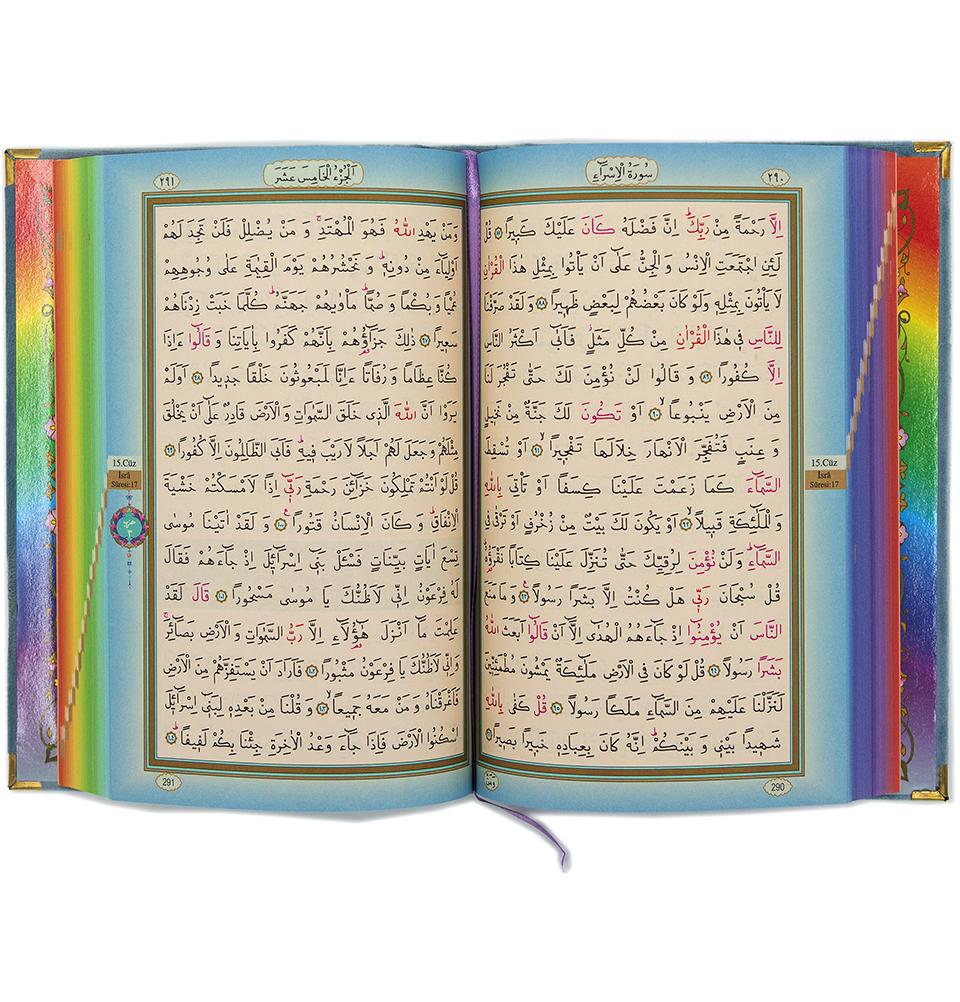 سُورَةُ الْاِسْرَٓاءِ
٢٩٠
اِلَّا رَحْمَةً مِنْ رَبِّكَۜ اِنَّ فَضْلَهُ كَانَ عَلَيْكَ كَب۪يرًا ﴿٨٧﴾ قُلْ
لَئِنِ اجْتَمَعَتِ الْاِنْسُ وَ الْجِنُّ عَلٰٓى اَنْ يَأْتُوا بِمِثْلِ هٰذَا الْقُرْاٰنِ
لَا يَأْتُونَ بِمِثْلِه۪ وَلَوْ كَانَ بَعْضُهُمْ لِبَعْضٍ ظَه۪يرًا ﴿٨٨﴾ وَ لَقَدْ صَرَّفْنَا
لِلنَّاسِ ف۪ي هٰذَا الْقُرْاٰنِ مِنْ كُلِّ مَثَلٍۘ فَاَبٰٓى اَكْثَرُ النَّاسِ
اِلَّا كُفُورًا ﴿٨٩﴾ وَ قَالُوا لَنْ نُؤْمِنَ لَكَ حَتّٰى تَفْجُرَ لَنَا
مِنَ الْاَرْضِ يَنْبُوعًاۙ ﴿٩٠﴾ اَوْ تَكُونَ لَكَ جَنَّةٌ مِنْ نَخ۪يلٍ
وَ عِنَبٍ فَتُفَجِّرَ الْاَنْهَارَ خِلَالَهَا تَفْج۪يرًاۙ ﴿٩١﴾ اَوْ تُسْقِطَ
السَّمَٓاءَ كَمَا زَعَمْتَ عَلَيْنَا كِسَفًا اَوْ تَأْتِيَ بِاللّٰهِ
وَ الْمَلٰٓئِكَةِ قَب۪يلًاۙ ﴿٩٢﴾ اَوْ يَكُونَ لَكَ بَيْتٌ مِنْ زُخْرُفٍ اَوْ تَرْقٰى فِي
السَّمَٓاءِۜ وَلَنْ نُؤْمِنَ لِرُقِيِّكَ حَتّٰى تُنَزِّلَ عَلَيْنَا كِتَابًا نَقْرَؤُ۬هُۜ
قُلْ سُبْحَانَ رَبّ۪ي هَلْ كُنْتُ اِلَّا بَشَرًا رَسُولًا۟ ﴿٩٣﴾ وَ مَا مَنَعَ
النَّاسَ اَنْ يُؤْمِنُٓوا اِذْ جَٓاءَهُمُ الْهُدٰٓى اِلَّٓا اَنْ قَالُٓوا اَبَعَثَ اللّٰهُ
بَشَرًا رَسُولًا ﴿٩٤﴾ قُلْ لَوْ كَانَ فِي الْاَرْضِ مَلٰٓئِكَةٌ يَمْشُونَ مُطْمَئِنّ۪ينَ
لَنَزَّلْنَا عَلَيْهِمْ مِنَ السَّمَٓاءِ مَلَكًا رَسُولًا ﴿٩٥﴾ قُلْ كَفٰى بِاللّٰهِ
شَه۪يدًا بَيْن۪ي وَ بَيْنَكُمْۜ اِنَّهُ كَانَ بِعِبَادِه۪ خَب۪يرًا بَص۪يرًا ﴿٩٦﴾
وَمَنْ
290
15.Cüz
İsrâ
Sûresi:17
٢٩١
اَلْجُزْءُ الْخَامِسَ عَشَرَ
وَمَنْ يَهْدِ اللّٰهُ فَهُوَ الْمُهْتَدِۚ وَ مَنْ يُضْلِلْ فَلَنْ تَجِدَ لَهُمْ
اَوْلِيَٓاءَ مِنْ دُونِه۪ۜ وَ نَحْشُرُهُمْ يَوْمَ الْقِيٰمَةِ عَلٰى وُجُوهِهِمْ
عُمْيًا وَ بُكْمًا وَ صُمًّاۜ مَأْوٰيهُمْ جَهَنَّمُۜ كُلَّمَا خَبَتْ زِدْنَاهُمْ
سَع۪يرًا ﴿٩٧﴾ ذٰلِكَ جَزَٓاؤُ۬هُمْ بِاَنَّهُمْ كَفَرُوا بِاٰيَاتِنَا وَ قَالُٓوا ءَاِذَا
كُنَّا عِظَامًا وَ رُفَاتًا ءَاِنَّا لَمَبْعُوثُونَ خَلْقًا جَد۪يدًا ﴿٩٨﴾ اَوَلَمْ
يَرَوْا اَنَّ اللّٰهَ الَّذ۪ي خَلَقَ السَّمٰوَاتِ وَ الْاَرْضَ قَادِرٌ عَلٰٓى اَنْ يَخْلُقَ
مِثْلَهُمْ وَ جَعَلَ لَهُمْ اَجَلًا لَا رَيْبَ ف۪يهِۜ فَاَبَى الظَّالِمُونَ اِلَّا كُفُورًا ﴿٩٩﴾
قُلْ لَوْ اَنْتُمْ تَمْلِكُونَ خَزَٓائِنَ رَحْمَةِ رَبّ۪ٓي اِذًا لَاَمْسَكْتُمْ خَشْيَةَ
الْاِنْفَاقِۜ وَ كَانَ الْاِنْسَانُ قَتُورًا۟ ﴿١٠٠﴾ وَ لَقَدْ اٰتَيْنَا مُوسٰى
تِسْعَ اٰيَاتٍ بَيِّنَاتٍ فَسْـَٔلْ بَن۪ٓي اِسْرَٓائ۪لَ اِذْ جَٓاءَهُمْ فَقَالَ
لَهُ فِرْعَوْنُ اِنّ۪ي لَاَظُنُّكَ يَا مُوسٰى مَسْحُورًا ﴿١٠١﴾ قَالَ لَقَدْ
عَلِمْتَ مَٓا اَنْزَلَ هٰٓؤُ۬لَٓاءِ اِلَّا رَبُّ السَّمٰوَاتِ وَ الْاَرْضِ بَصَٓائِرَۚ
وَ اِنّ۪ي لَاَظُنُّكَ يَا فِرْعَوْنُ مَثْبُورًا ﴿١٠٢﴾ فَاَرَادَ اَنْ يَسْتَفِزَّهُمْ مِنَ الْاَرْضِ
فَاَغْرَقْنَاهُ وَ مَنْ مَعَهُ جَم۪يعًاۙ ﴿١٠٣﴾ وَ قُلْنَا مِنْ بَعْدِه۪ لِبَن۪ٓي اِسْرَٓائ۪لَ
اسْكُنُوا الْاَرْضَ فَاِذَا جَٓاءَ وَعْدُ الْاٰخِرَةِ جِئْنَا بِكُمْ لَف۪يفًاۜ ﴿١٠٤﴾
291
15.Cüz
İsrâ
Sûresi:17
حزب
٣